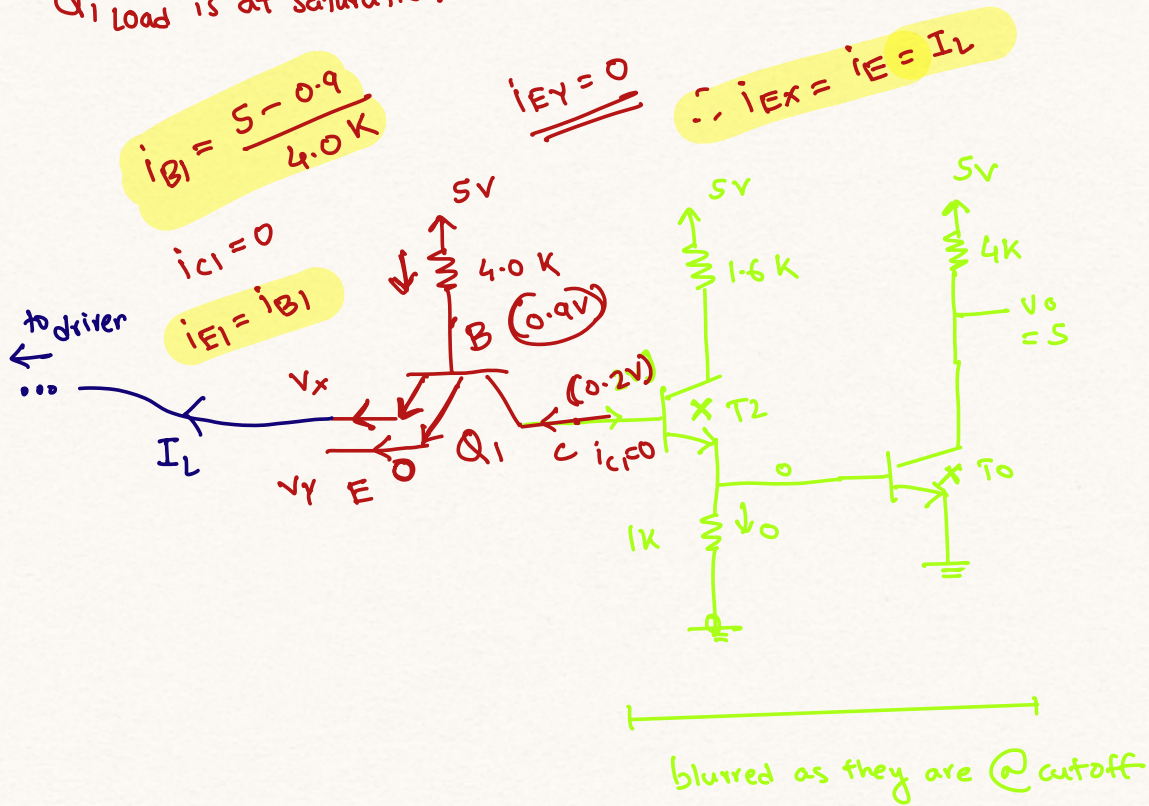 Q1 Load is at saturation.
iB1 = 5 - 0.9 / 4.0 K
iEY = 0
∴ iEX = iE = IL
iC1 = 0
iE1 = iB1
5V
4.0 K
B (0.9V)
to driver
...
IL
Vx
VY E 0
Q1
(0.2V)
C iC1=0
5V
1.6 K
X T2
0
1K
↓ 0
0
5V
4K
Vo
= 5
X To
blurred as they are @ cutoff